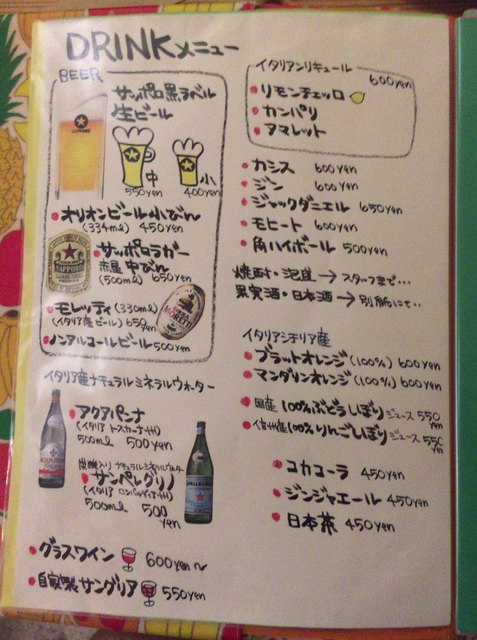 DRINKメニュー
BEER
サッポロ黒ラベル
生ビール
SAPPORO
中
小
550yen
400yen
オリオンビール小びん
(334ml) 450yen
サッポロラガー
赤星 中びん
(500ml) 650yen
SAPPORO
モレッティ(330ml)
(イタリア産ビール) 650yen
MORETTI
ノンアルコールビール500yen
イタリア産ナチュラルミネラルウォーター
アクアパンナ
(イタリア トスカーナ州)
500ml 500yen
炭酸入りナチュラルミネラルウォーター
サンペレグリノ
(イタリア ロンバルディア州)
500ml 500
yen
グラスワイン 600yen〜
自家製サングリア 550yen
イタリアンリキュール
600yen
リモンチェッロ
カンパリ
アマレット
カシス 600yen
ジン 600yen
ジャックダニエル 650yen
モヒート 600yen
角ハイボール 500yen
焼酎・泡盛→スタッフまで…
果実酒・日本酒→別紙にて..
イタリアシチリア産
ブラッドオレンジ(100%) 600yen
マンダリンオレンジ(100%) 600yen
国産 100%ぶどうしぼりジュース 550
yen
信州産100%りんごしぼりジュース 550
yen
コカコーラ 450yen
ジンジャエール 450yen
日本茶 450yen